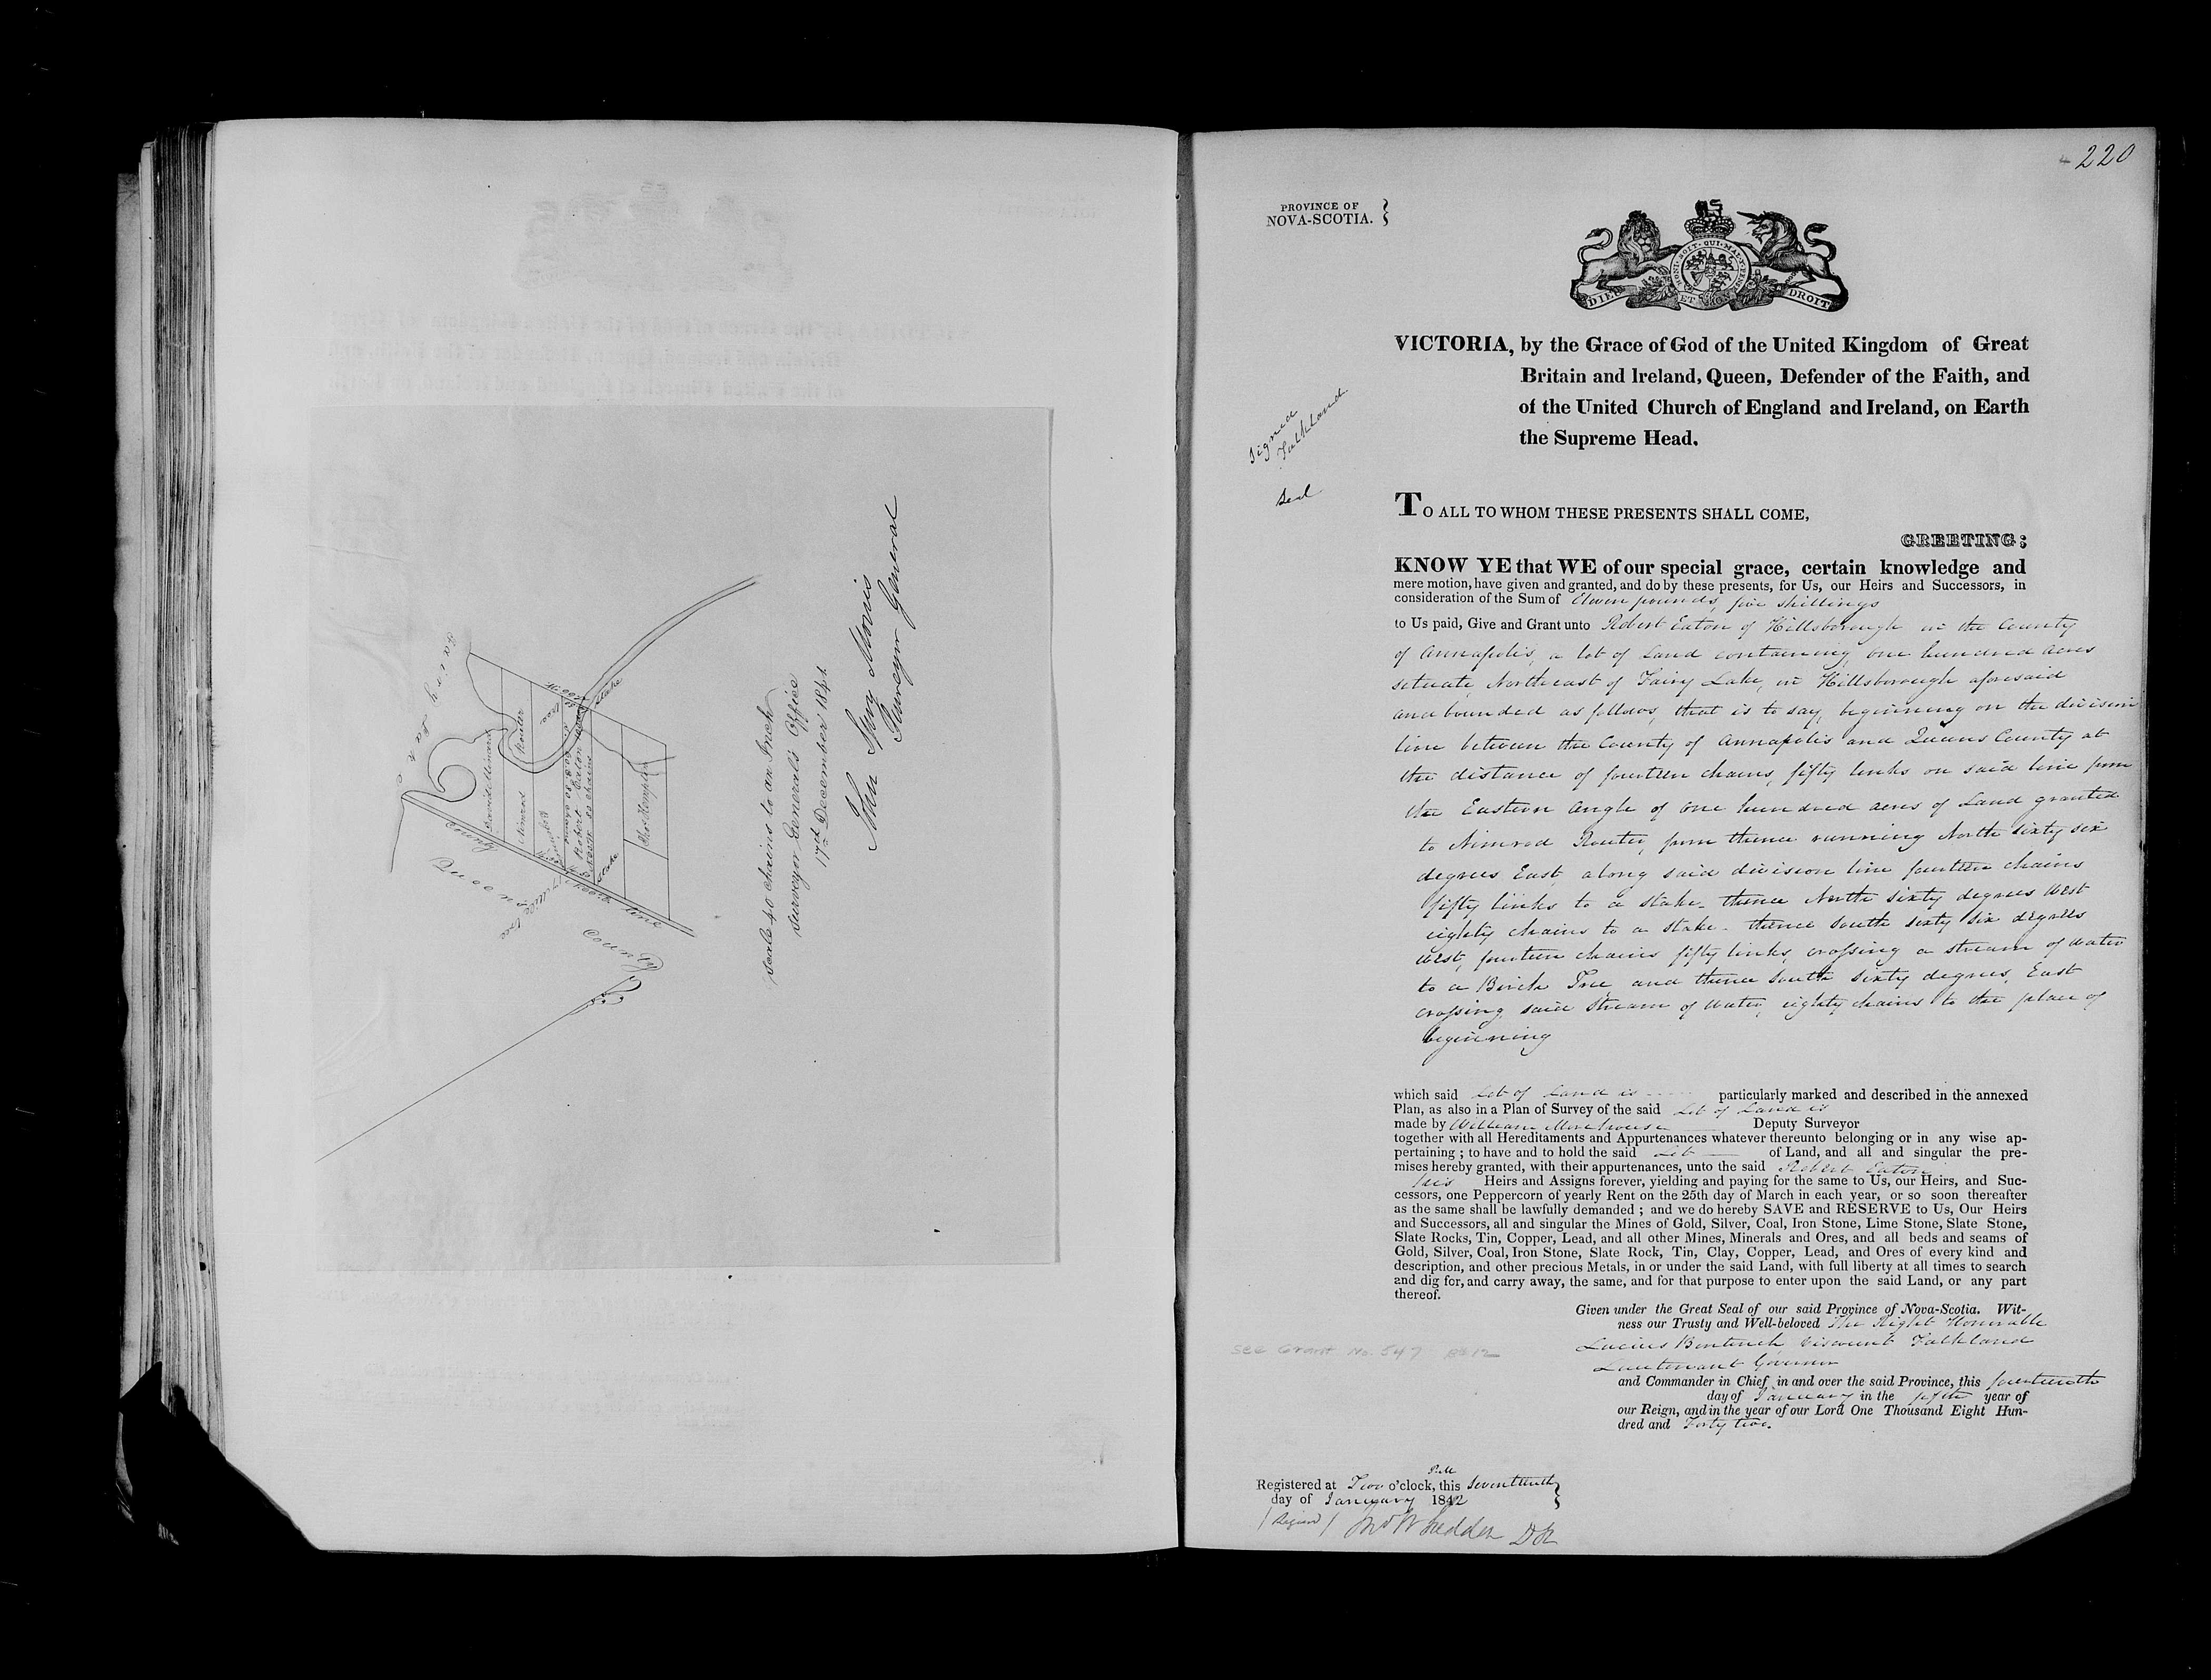 Fairy Lake
David Millinard
Nimrod
Router
Robert Eaton
100 acres
80 chains
Stake
Stake
Thos Kempton
County
line
Queens
County
Scale 40 chains to an Inch
Surveyor General's Office
17th December 1841.
John Spry Morris
Surveyor General
220
PROVINCE OF
NOVA-SCOTIA.
HONI SOIT QUI MAL Y PENSE
DIEU ET MON DROIT
Signed
Falkland
Seal
VICTORIA, by the Grace of God of the United Kingdom of Great
Britain and Ireland, Queen, Defender of the Faith, and
of the United Church of England and Ireland, on Earth
the Supreme Head.
TO ALL TO WHOM THESE PRESENTS SHALL COME,
GREETING;
KNOW YE that WE of our special grace, certain knowledge and
mere motion, have given and granted, and do by these presents, for Us, our Heirs and Successors, in
consideration of the Sum of Eleven pounds, five shillings
to Us paid, Give and Grant unto Robert Eaton of Hillsborough in the County
of Annapolis, a lot of Land containing one hundred acres
situate Northeast of Fairy Lake, in Hillsborough aforesaid
and bounded as follows, that is to say, beginning on the division
line between the County of Annapolis and Queens County at
the distance of fourteen chains, fifty links on said line from
the Eastern angle of one hundred acres of Land granted
to Nimrod Router, from thence running North sixty six
degrees East, along said division line fourteen chains
fifty links to a stake - thence North sixty degrees West
eighty chains to a stake - thence South sixty six degrees
West, fourteen chains fifty links, crossing a stream of water
to a Birch Tree and thence South sixty degrees, East
crossing said stream of water, eighty chains to the place of
beginning
which said Lot of Land is particularly marked and described in the annexed
Plan, as also in a Plan of Survey of the said Lot of Land is
made by William Morehouse Deputy Surveyor
together with all Hereditaments and Appurtenances whatever thereunto belonging or in any wise ap-
pertaining ; to have and to hold the said Lot of Land, and all and singular the pre-
mises hereby granted, with their appurtenances, unto the said Robert Eaton
his Heirs and Assigns forever, yielding and paying for the same to Us, our Heirs, and Suc-
cessors, one Peppercorn of yearly Rent on the 25th day of March in each year, or so soon thereafter
as the same shall be lawfully demanded ; and we do hereby SAVE and RESERVE to Us, Our Heirs
and Successors, all and singular the Mines of Gold, Silver, Coal, Iron Stone, Lime Stone, Slate Stone,
Slate Rocks, Tin, Copper, Lead, and all other Mines, Minerals and Ores, and all beds and seams of
Gold, Silver, Coal, Iron Stone, Slate Rock, Tin, Clay, Copper, Lead, and Ores of every kind and
description, and other precious Metals, in or under the said Land, with full liberty at all times to search
and dig for, and carry away, the same, and for that purpose to enter upon the said Land, or any part
thereof.
Given under the Great Seal of our said Province of Nova-Scotia. Wit-
ness our Trusty and Well-beloved The Right Honorable
Lucius Bentinck Viscount Falkland
Lieutenant Governor
and Commander in Chief in and over the said Province, this fourteenth
day of January in the fifth year of
our Reign, and in the year of our Lord One Thousand Eight Hun-
dred and Forty two.
see Grant No. 547
Registered at Two o'clock, P.M this Seventeenth
day of January 1842